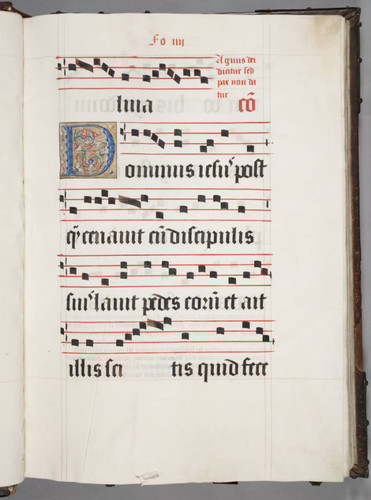 Fo iiij
Agnus dei
dicitur sed
pax non da
tur
luia cō
Dominus iesus post
q̄ cenauit cū discipulis
suis lauit pedes eorū et ait
illis sci tis quid fece